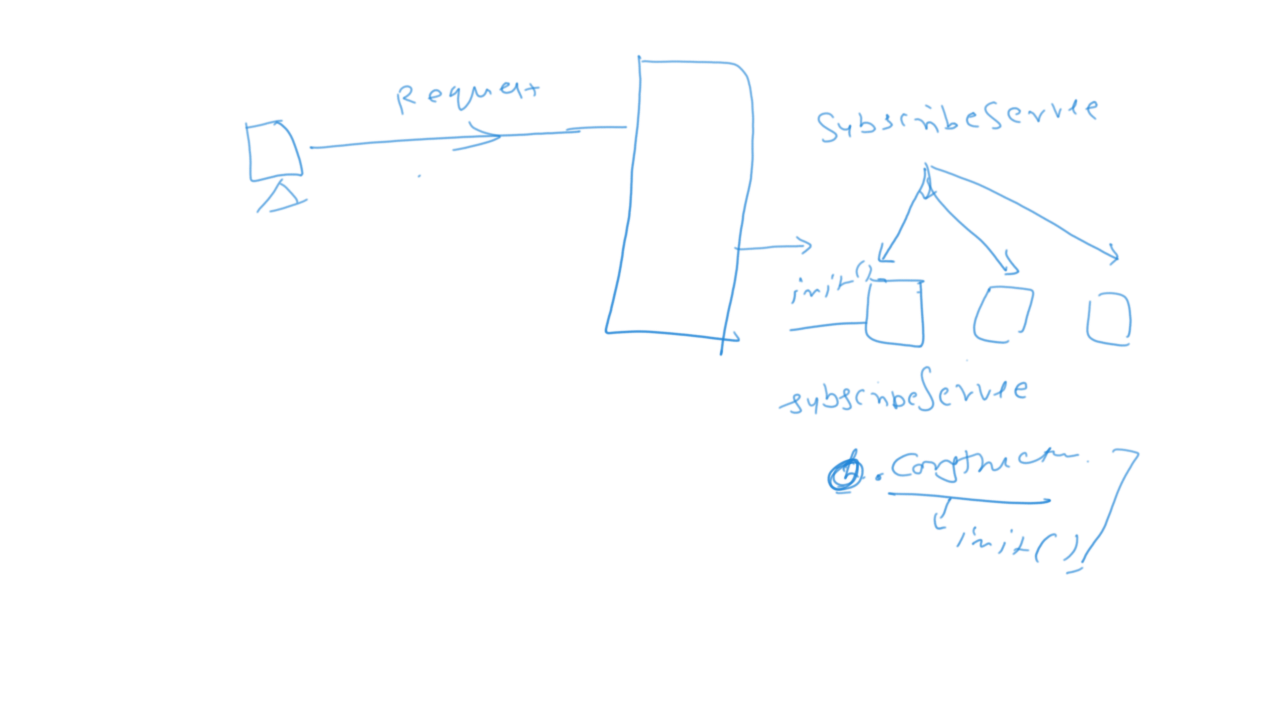 Request
SubscribeServle
init()
subscribeServle
. Constructr.
init()